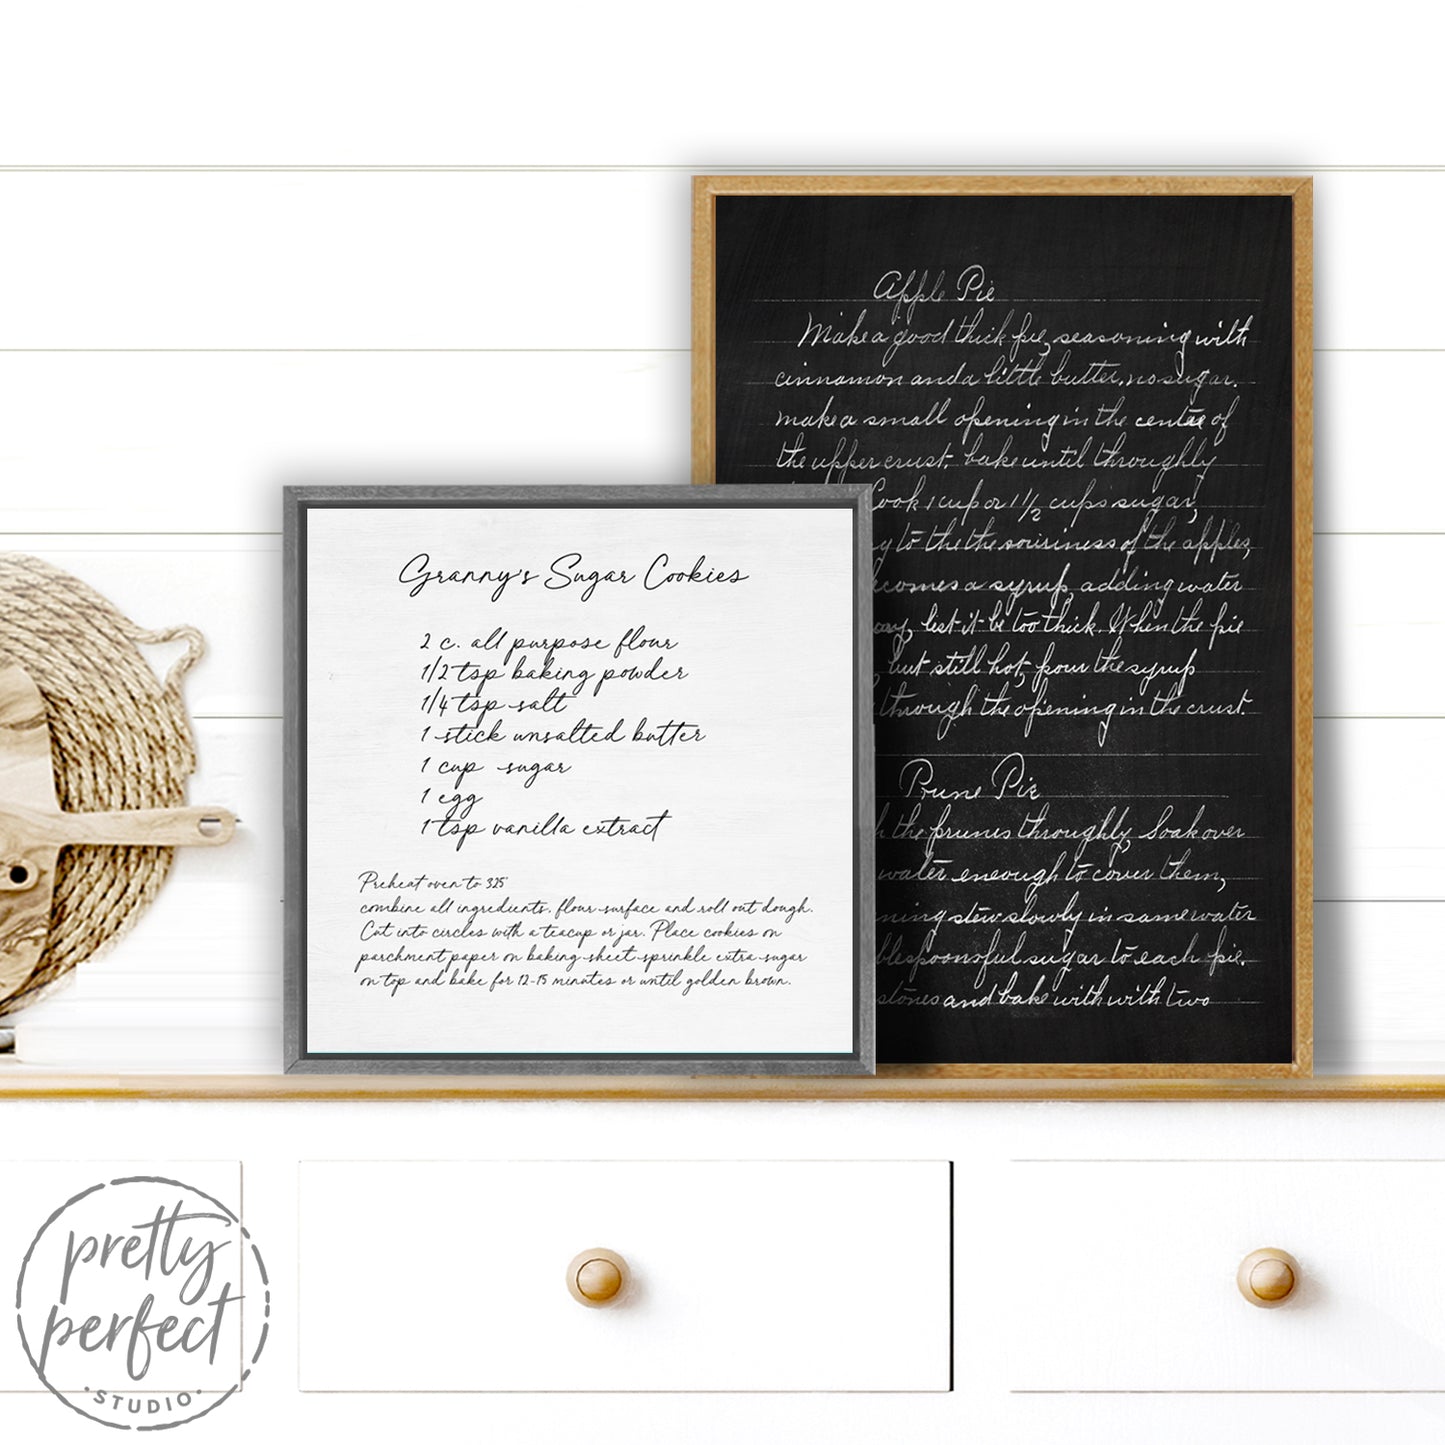 Granny's Sugar Cookies
2 c. all purpose flour
1/2 tsp baking powder
1/4 tsp salt
1 stick unsalted butter
1 cup sugar
1 egg
1 tsp vanilla extract
Preheat oven to 325°
combine all ingredients. flour surface and roll out dough.
Cut into circles with a teacup or jar. Place cookies on
parchment paper on baking sheet sprinkle extra sugar
on top and bake for 12-15 minutes or until golden brown.
Apple Pie
Make a good thick pie, seasoning with
cinnamon and a little butter, no sugar.
make a small opening in the centre of
the upper crust. bake until throughly
Cook 1 cup or 1 1/2 cups sugar,
to the the souriness of the apples,
becomes a syrup, adding water
lest it be too thick. When the pie
but still hot, pour the syrup
through the opening in the crust.
Prune Pie
the prunes throughly, Soak over
water eneough to cover them,
stew slowly in same water
sugar to each pie.
stones and bake with with two
pretty
perfect
STUDIO